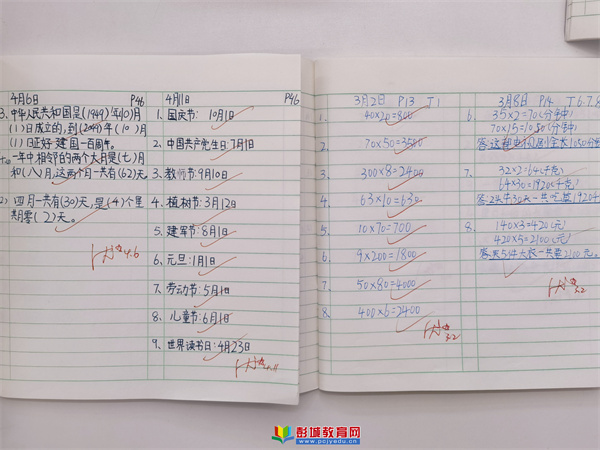 4月6日 P46
3. 中华人民共和国是(1949)年(10)月
(1)日成立的,到(2049)年(10)月
(1)日正好建国一百周年。
一年中相邻的两个大月是(七)月
和(八)月,这两个月一共有(62)天。
四月一共有(30)天,是(4)个星
期零(2)天。
4.6
4月11日 P46
1. 国庆节:10月1日
2. 中国共产党生日:7月1日
3. 教师节:9月10日
4. 植树节:3月12日
5. 建军节:8月1日
6. 元旦:1月1日
7. 劳动节:5月1日
8. 儿童节:6月1日
9. 世界读书日:4月23日
3月2日 P13 T1
1. 40×20=800
2. 70×50=3500
3. 300×8=2400
4. 63×10=630
5. 10×70=700
6. 9×200=1800
7. 50×80=4000
8. 400×6=2400
3.2
3月8日 P14 T6.7.8
6. 35×2=70(分钟)
70×15=1050(分钟)
答:这部电视剧全长1050分钟
7. 32×2=64(千克)
64×30=1920(千克)
8. 140×3=420(元)
420×5=2100(元)
2100元。
彭城教育网
www.pcjyedu.cn